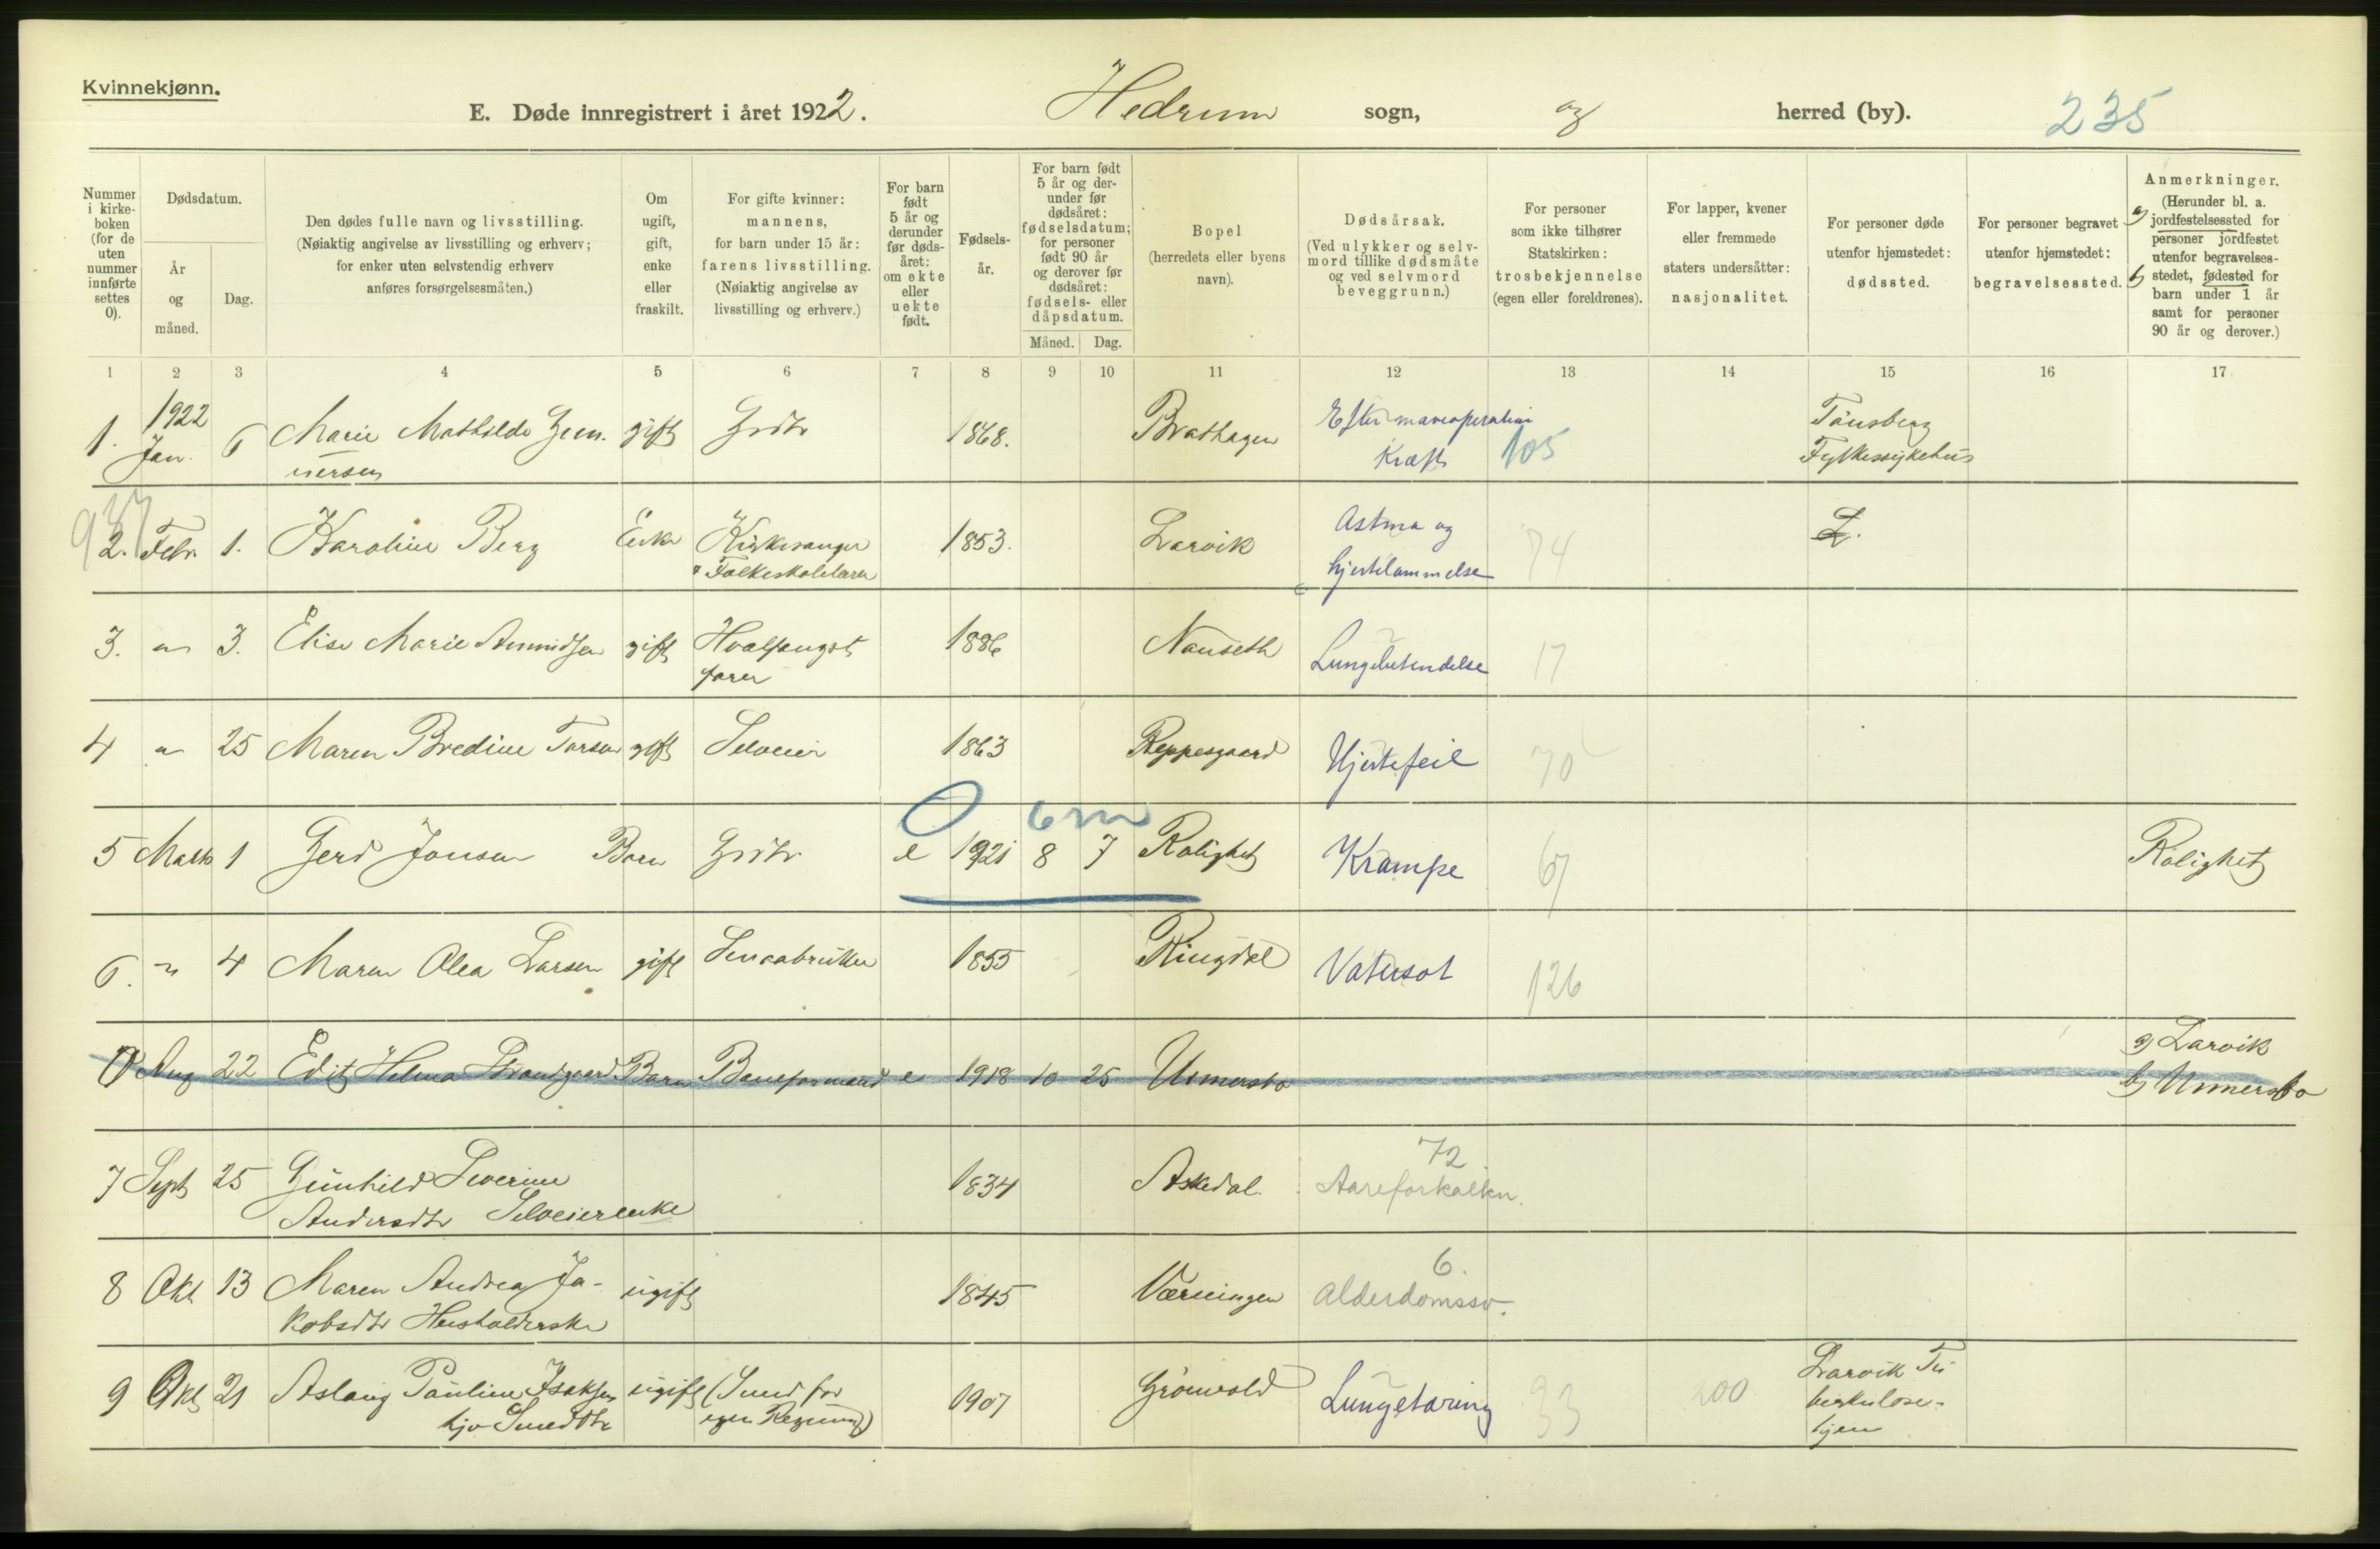 Kvinnekjønn.
E. Døde innregistrert i året 1922. Hedrum sogn, og herred (by). 235
Nummer i kirkeboken (for de uten nummer innførte settes 0).
Dødsdatum.
År og måned.
Dag.
Den dødes fulle navn og livsstilling.
(Nøiaktig angivelse av livsstilling og erhverv;
for enker uten selvstendig erhverv
anføres forsørgelsesmåten.)
Om
ugift,
gift,
enke
eller
fraskilt.
For gifte kvinner:
mannens,
for barn under 15 år:
farens livsstilling.
(Nøiaktig angivelse av
livsstilling og erhverv.)
For barn
født
5 år og
derunder
før døds-
året:
om ekte
eller
uekte
født.
Fødsels-
år.
For barn født
5 år og der-
under før
dødsåret:
fødselsdatum;
for personer
født 90 år
og derover før
dødsåret:
fødsels- eller
dåpsdatum.
Måned. Dag.
Bopel
(herredets eller byens
navn).
Dødsårsak.
(Ved ulykker og selv-
mord tillike dødsmåte
og ved selvmord
beveggrunn.)
For personer
som ikke tilhører
Statskirken:
trosbekjennelse
(egen eller foreldrenes).
For lapper, kvener
eller fremmede
staters undersåtter:
nasjonalitet.
For personer døde
utenfor hjemstedet:
dødssted.
For personer begravet
utenfor hjemstedet:
begravelsessted.
Anmerkninger.
(Herunder bl. a.
a) jordfestelsessted for
personer jordfestet
utenfor begravelses-
b) stedet, fødested for
barn under 1 år
samt for personer
90 år og derover.)
1 2 3 4 5 6 7 8 9 10 11 12 13 14 15 16 17
1. 1922 Jan. 6 Marie Mathilde gift Grdbr 1868. Brathagen Efter maveoperation Kræft 105 Tönsberg Fylkessykehus
2. Febr. 1. Karoline Berg Enke Kirkesanger Folkeskolelærer 1853. Larvik Astma og hjertelammelse 74 L.
3. " 3. Elise Marie gift Hvalfangst farer 1886 Nanseth Lungebetendelse 17
4 " 25 Maren Bredine gift Selveier 1863 Reppesgaard Hjertefeil 70
0 6 m
5 Marts 1 Gerd Jonsen Barn Grdbr e 1921 8 7 Rolighet Krampe 67 Rolighet
6. " 4 Maren Olea Larsen gift 1855 Ringdal Vatersot 126
0 Aug 22 Edit Helma Barn Baneformand e 1918 10 25 Unnersbo a) Larvik b) Unnersbo
7 Sept 25 Gunhild Severine Andersdtr Selveierenke 1834 Askedal. 72 Aareforkalkn.
8 Okt 13 Maren Andrea Ja-
kobsdtr Husholderske ugift 1845 6. Alderdomssv.
9 Okt 21 Aslaug Pauline Isaksen
hjv Smeddtr ugift (Smed for egen Regning) 1907 Grönvold Lungetæring 33 200 Larvik Tu-
berkulose-
hjem